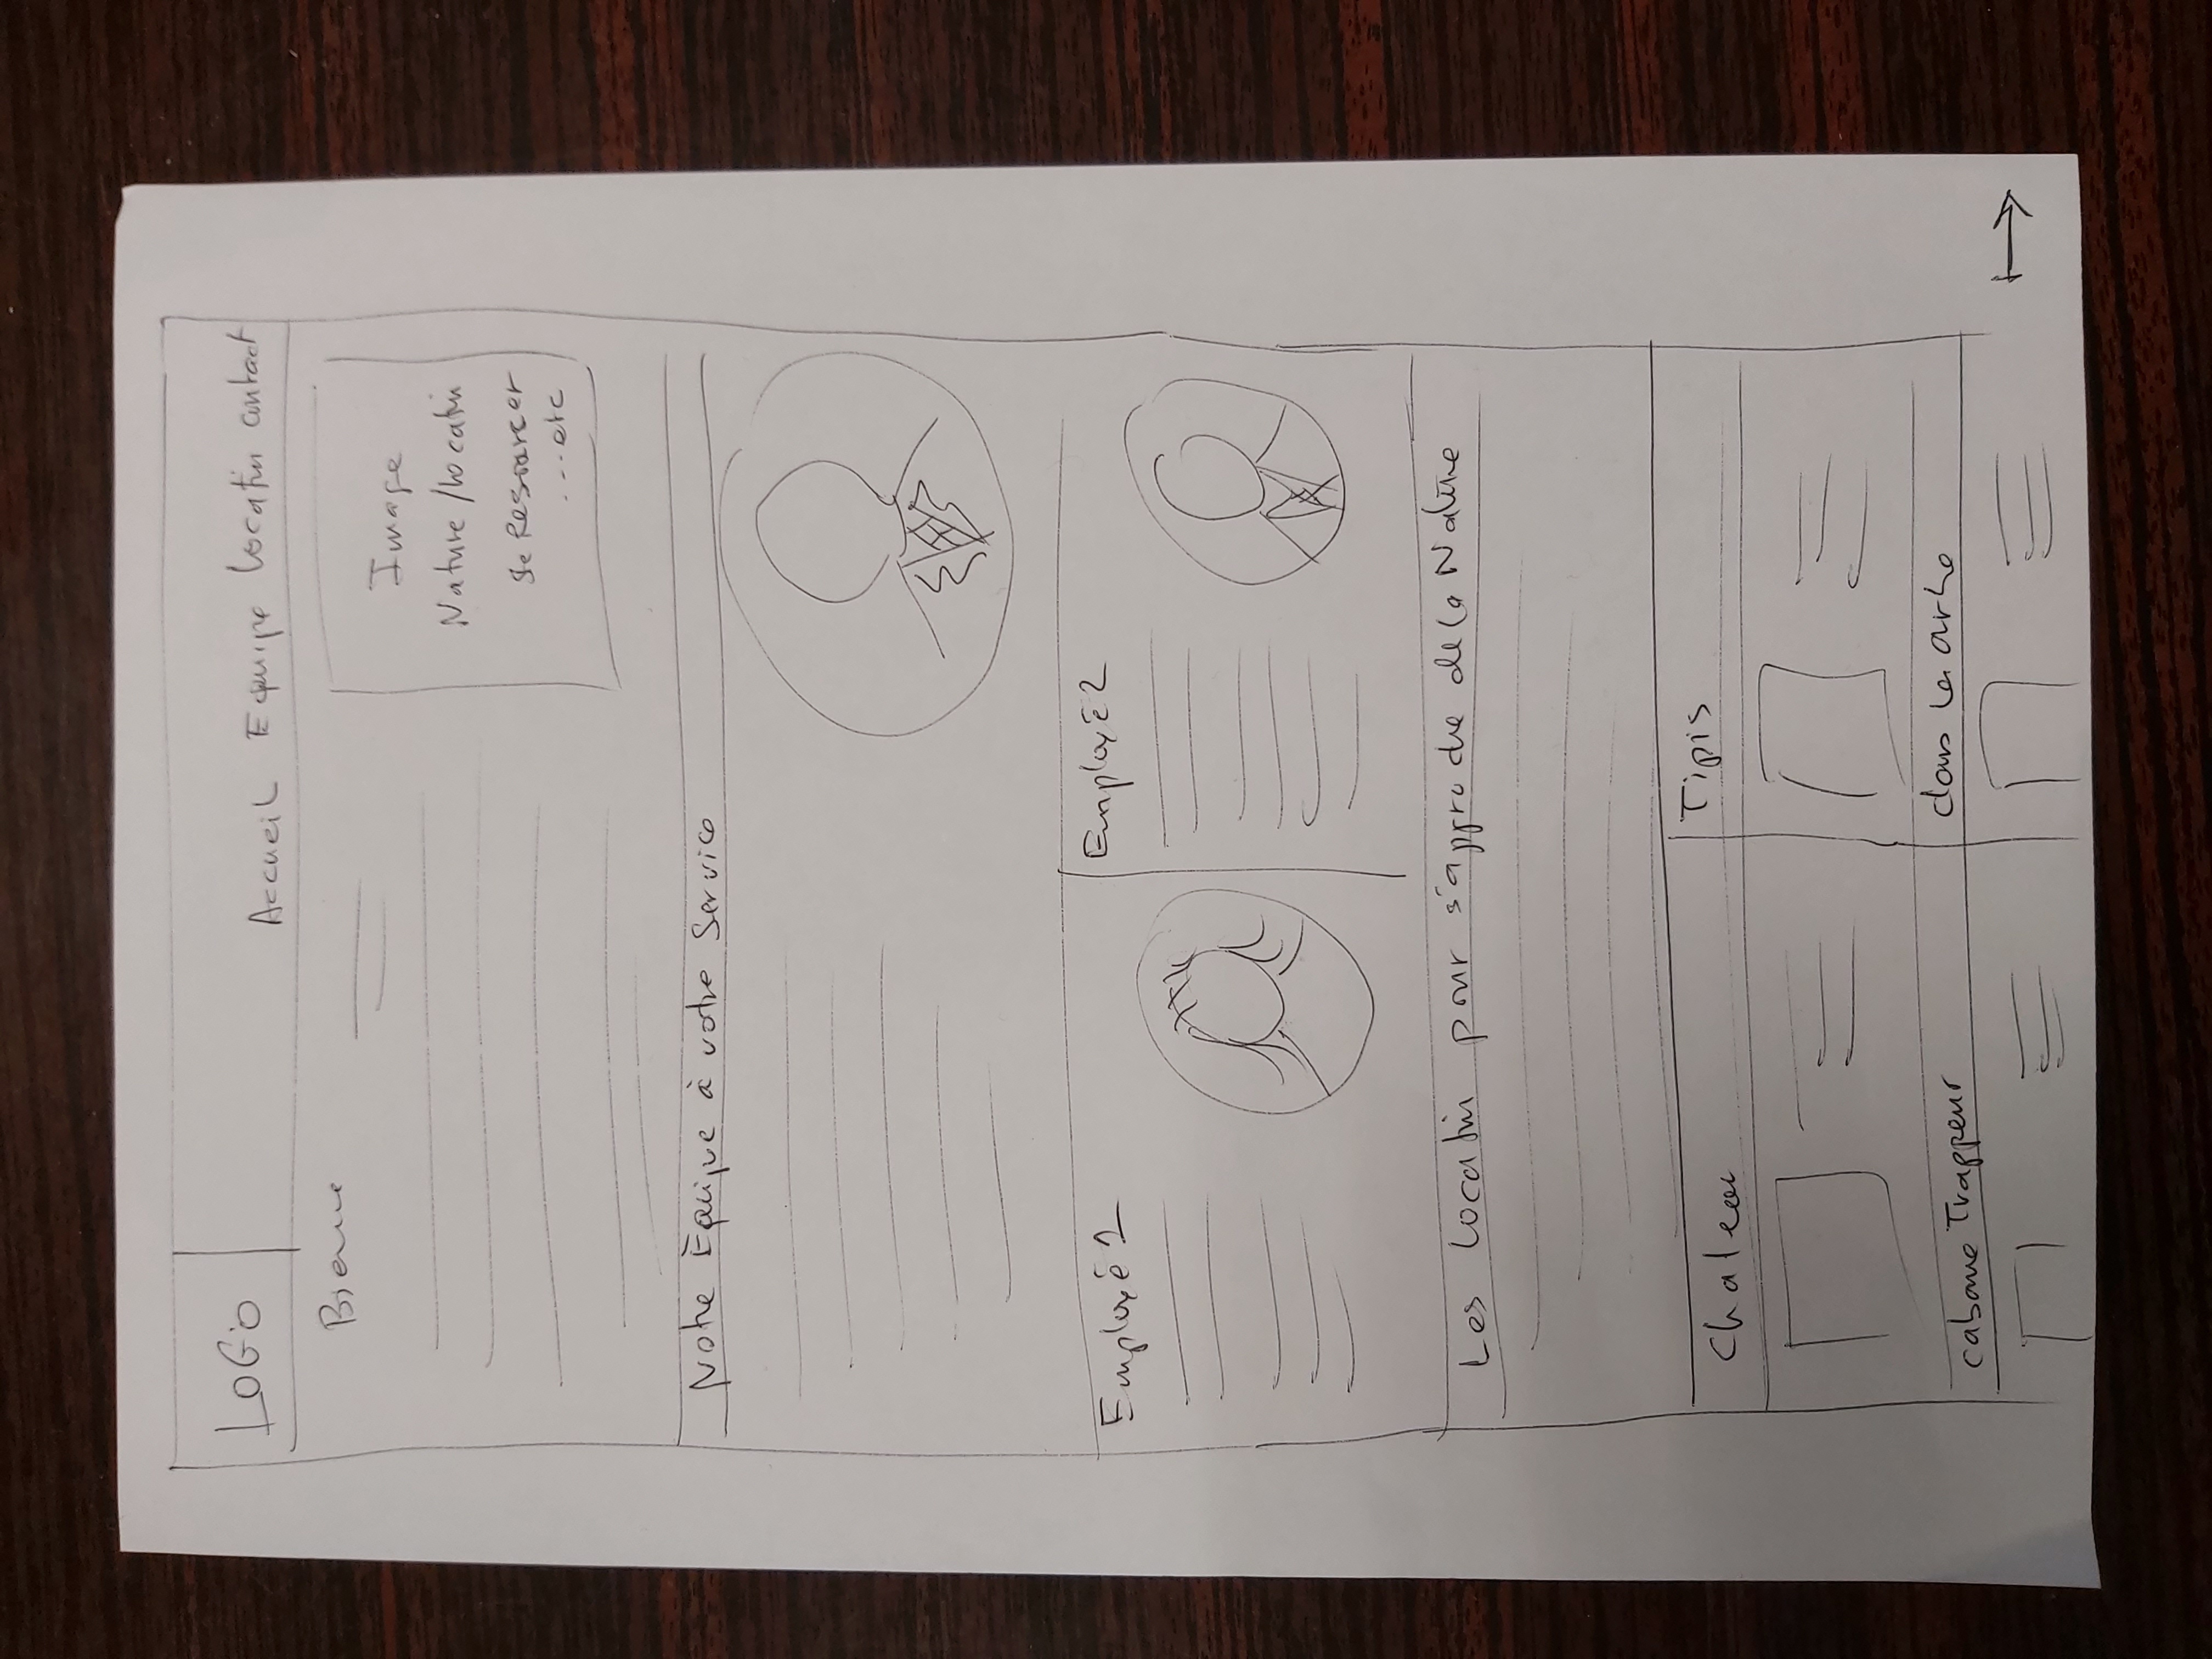 LOGO
Accueil Equipe Location contact
Image
Nature / Location
se Ressourcer
...etc
Notre Équipe à votre Service
Employé 1
Employé 2
Les Location pour s'approche de la Nature
Chateau
Tipis
cabane Trappeur
dans la arbre